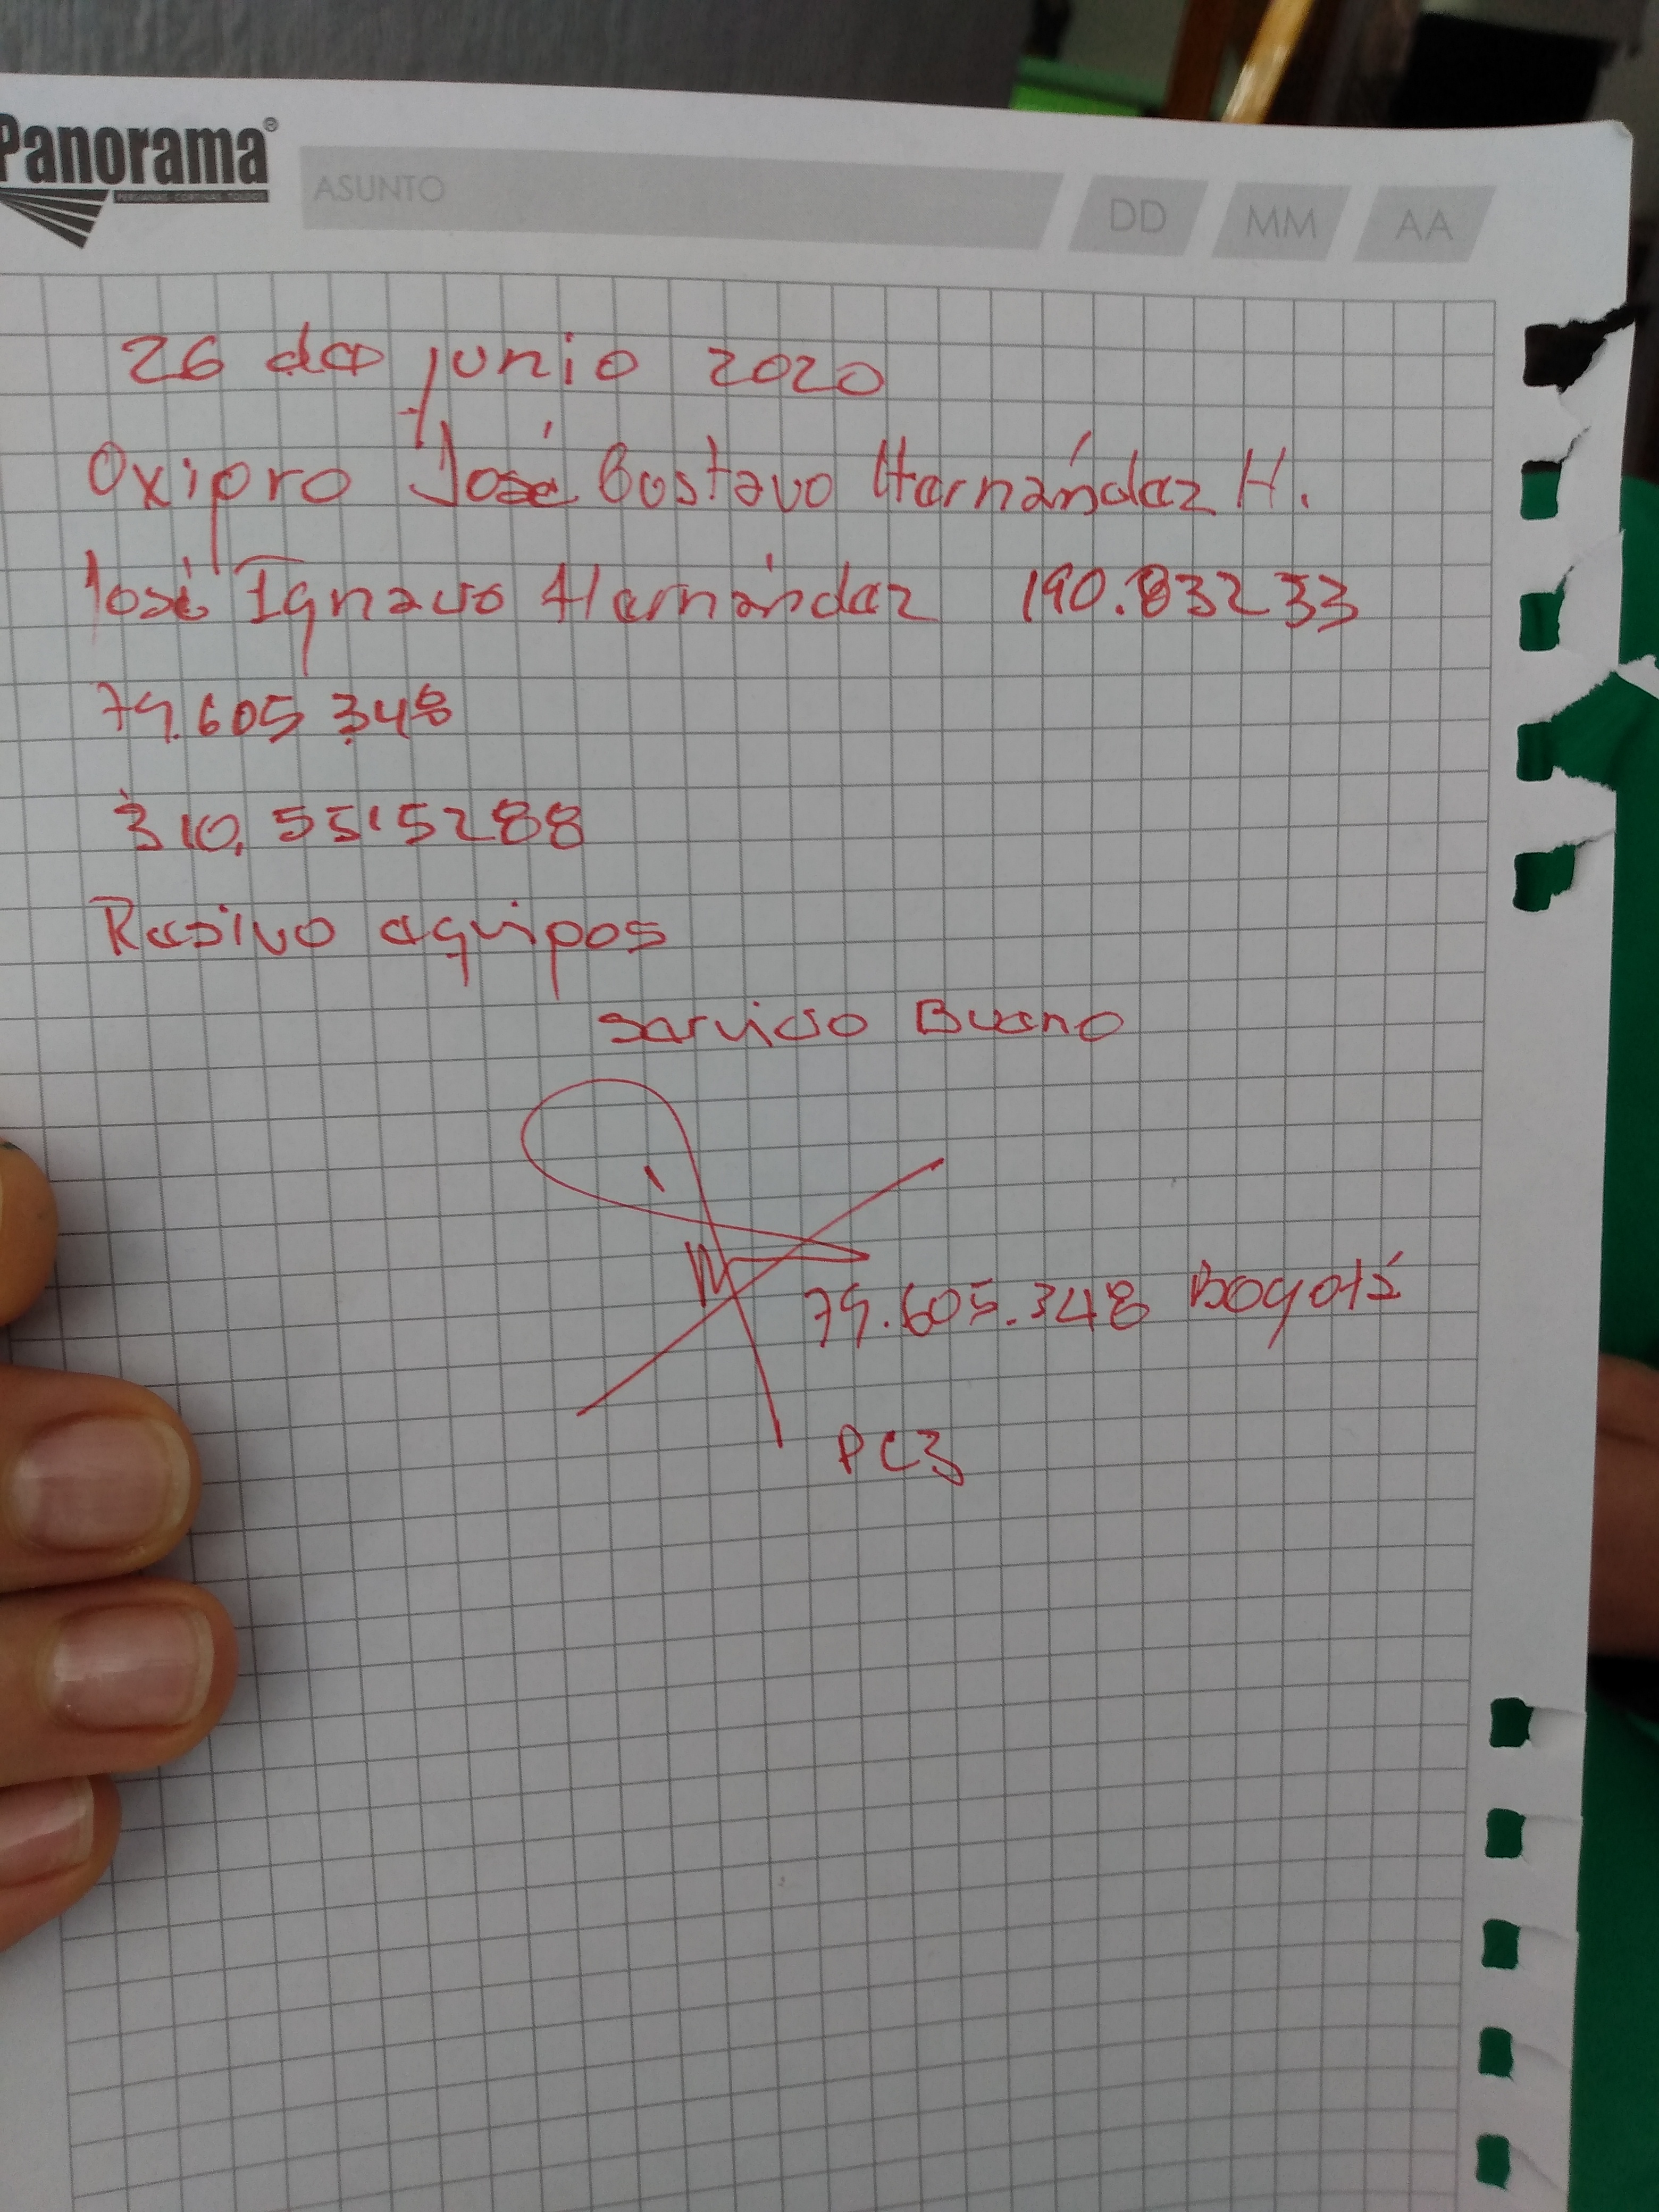 Panorama®
PERSIANAS CORTINAS TOLDOS
ASUNTO DD MM AA
26 de junio 2020
Oxipro José Gustavo Hernández H.
José Ignacio Hernández 190.83233
79.605.348
310, 5515288
Resivo equipos
servicio Bueno
79.605.348 Bogotá
PC3